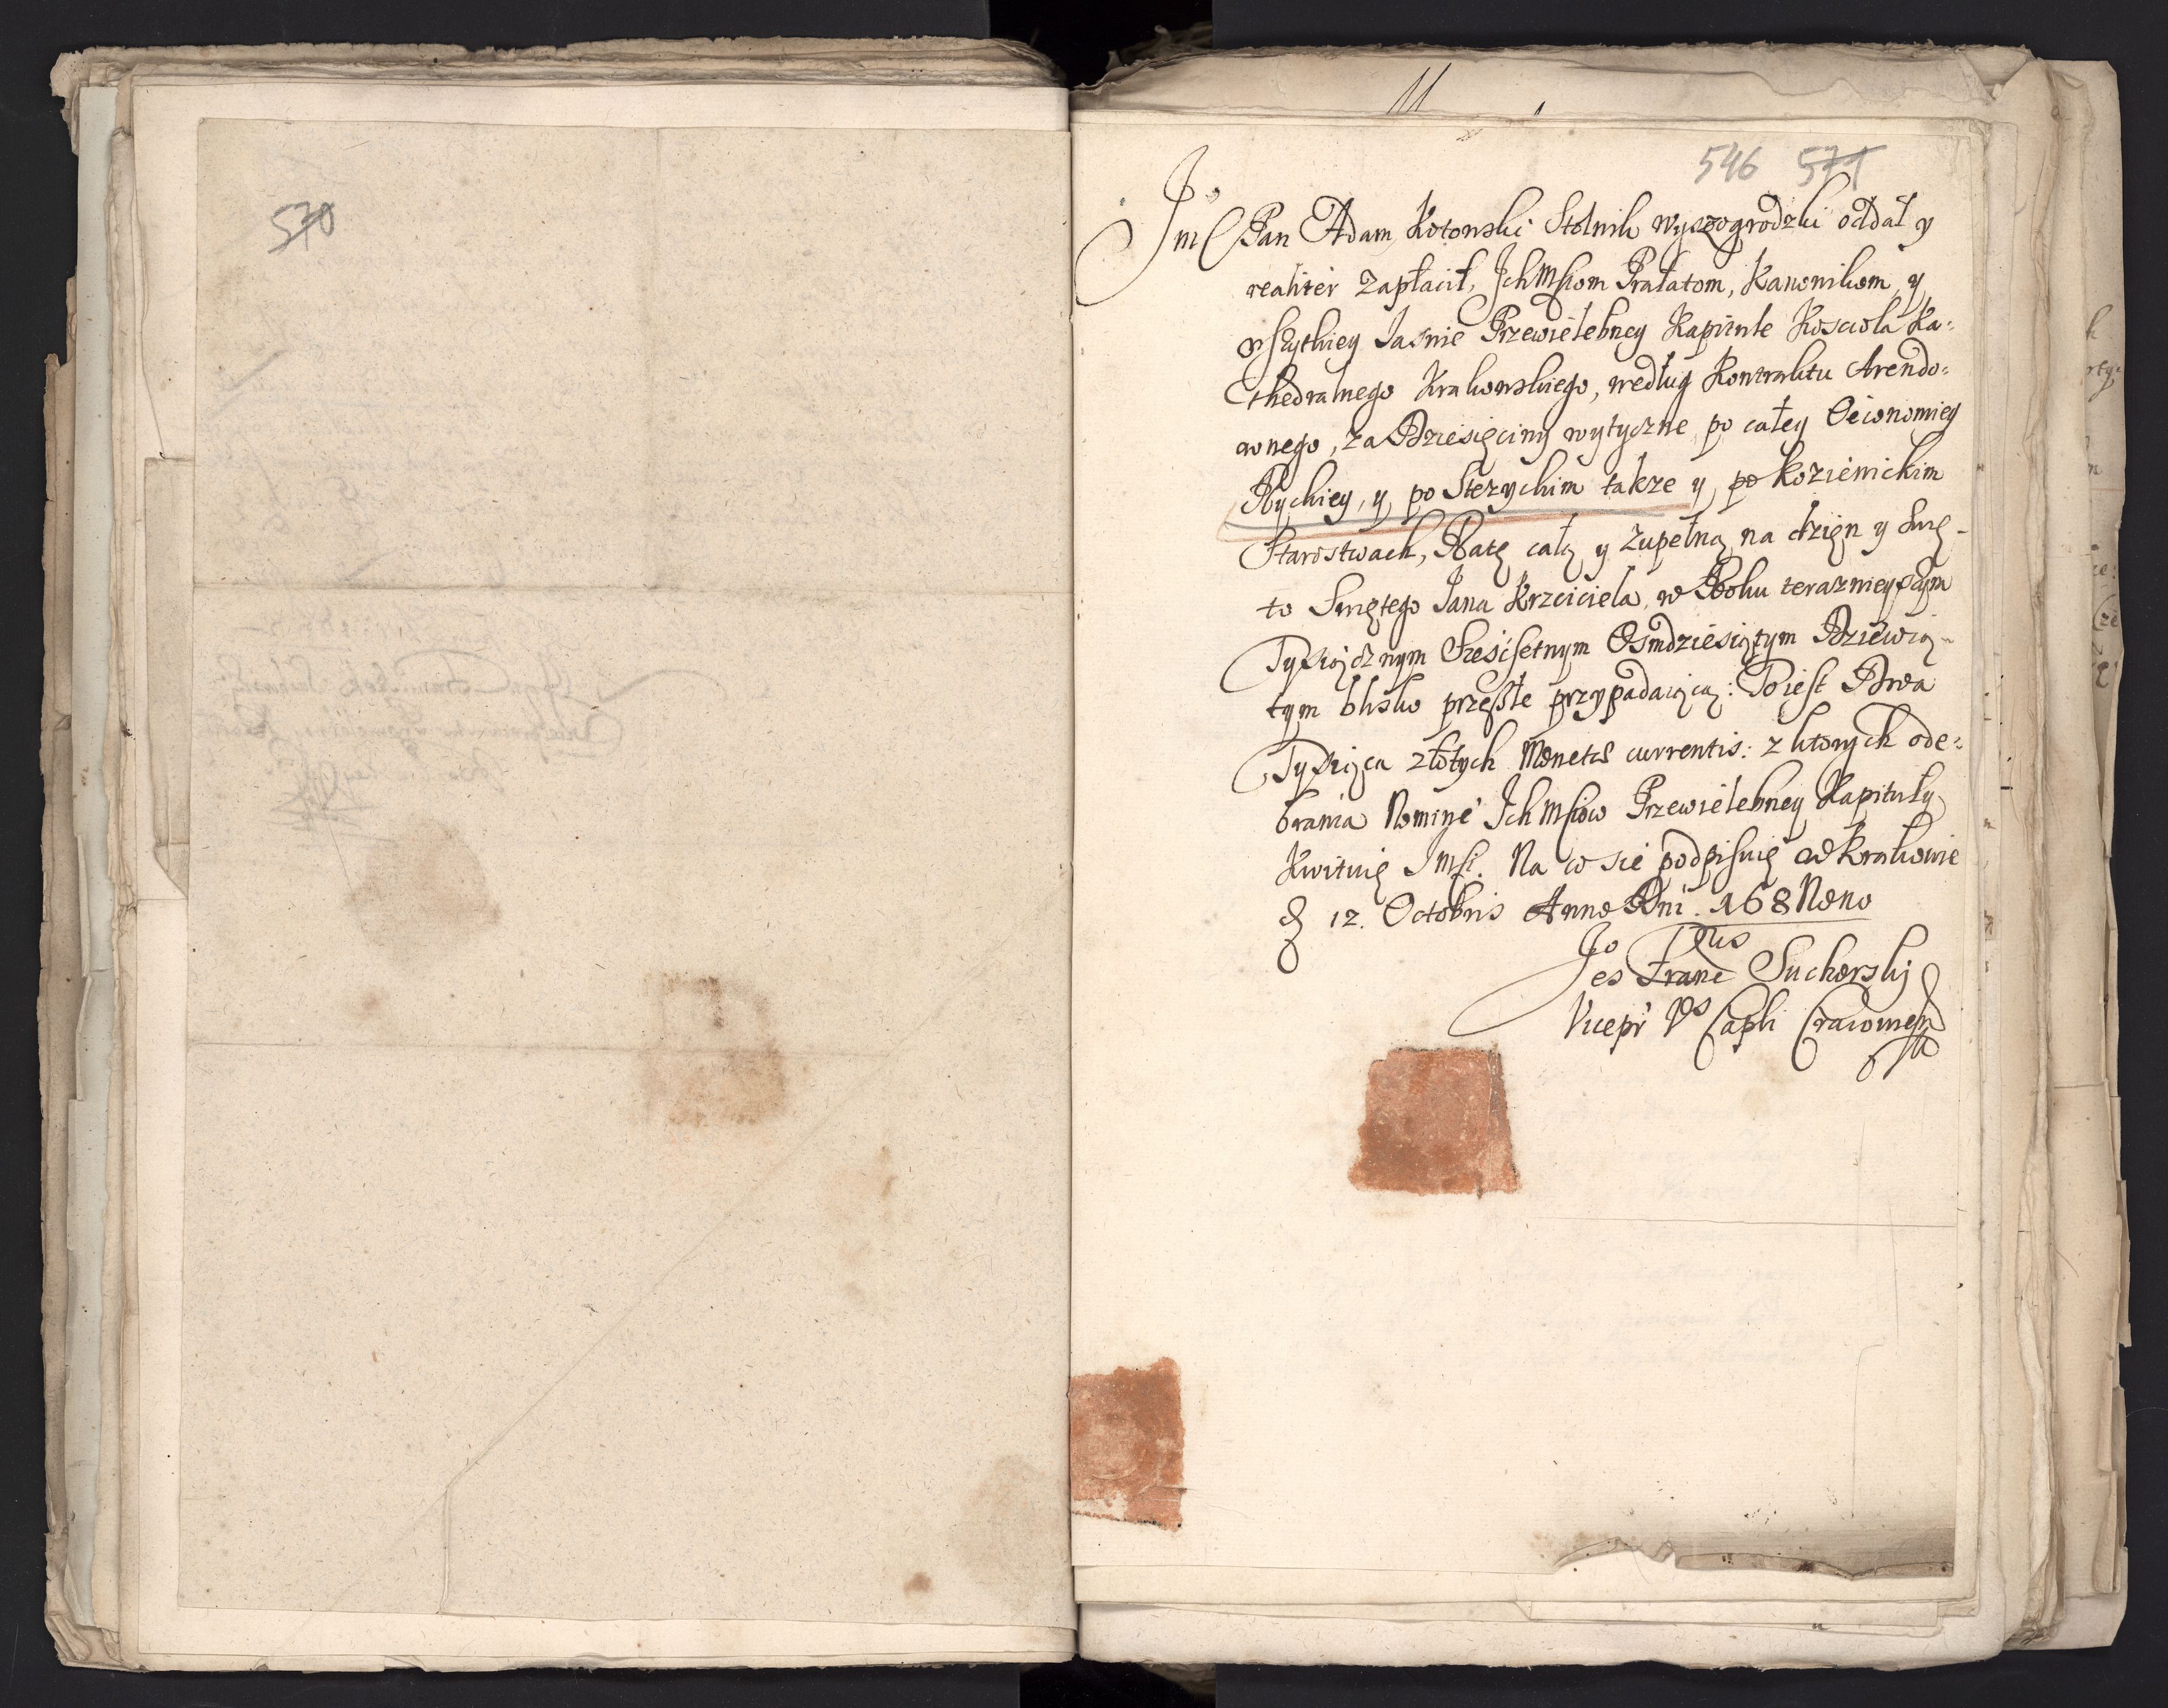 570
11
546 571
Jmć Pan Adam Kotowski Stolnik Wyszogrodzki oddał y
realiter zapłacił, Ich Mściom Prałatom, Kanonikom, y
wszytkiey Jasnie Przewielebney Kapitule Koscioła Ka=
thedralnego Krakowskiego, według Kontraktu Arendo=
wnego, za Dziesięciny wytyczne po całey Oeconomiey
Ryckiey, y po Stezyckim takze y po Kozienickim
Starostwach, Ratę całą y zupełną na dzięn y Swię-
to Swiętego Jana Krzciciela, w Roku teraznieyszym
Tysiącznym Szescsetnym Osmdziesiątym Dziewią-
tym blisko przeszłe przypadaiącą: To iest Dwa
Tysiąca złotych Monetæ currentis: z ktorych ode=
brania Nomine Ich Mściow Przewielebney Kapituły
Kwituię Jmści. Na co się podpisuię w Krakowie
d 12. Octobris Anno Dni. 168 Nono
Joes Francus Suchorski
Vicepr Vs Capli Cracouien